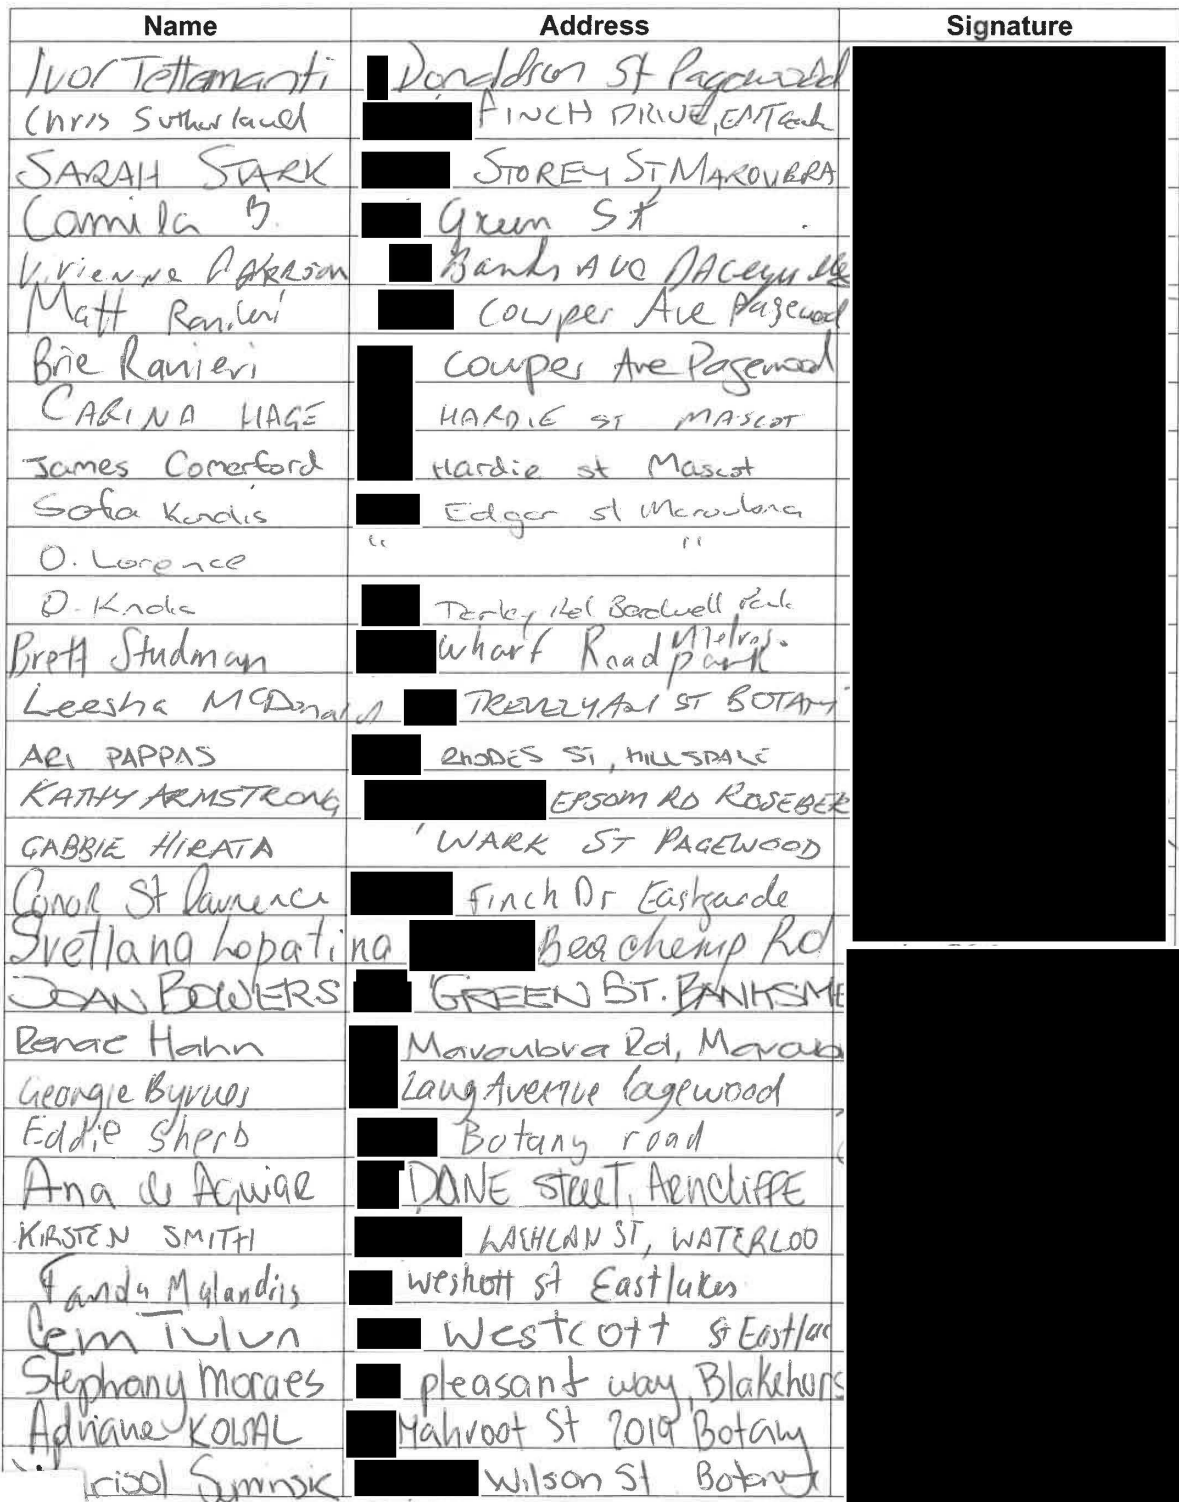 Name Address Signature
Ivor Tettamanti Donaldson St Pagewood
Chris Sutherland FINCH DRIVE,
SARAH STARK STOREY ST, MAROUBRA
Camila B. Green St
Vivienne Banks Ave DACEYville
Matt Ranieri Cowper Ave Pagewood
Brie Ranieri Cowper Ave Pagewood
CARINA HAGE HARDIE ST MASCOT
James Comerford Hardie st Mascot
Sofia Kondis Edgar st
O. Lorence " "
O. Bardwell Park
Brett Studman Wharf Road Melros. park
Leesha McDonald ST BOTANY
ARI PAPPAS RHODES ST, HILLSDALE
KATHY ARMSTRONG EPSOM RD ROSEBER
GABBIE HIRATA WARK ST PAGEWOOD
Conor St Lawrence Finch Dr Eastgarde
Svetlana Lopatina Beachemp Rd
JOAN BOWERS GREEN ST. BANKSME
Renae Hahn Maroubra Rd, Maroub
Georgie Byrnes Lang Avenue Pagewood
Eddie Sherb Botany road
Ana de Aguiar DANE street, ARNCLIFFE
KIRSTEN SMITH LACHLAN ST, WATERLOO
Malandris st Eastlakes
Cem Tulun Westcott St
Stephany Moraes pleasant way, Blakehurs
Adriane KOWAL Mahroot St 2019 Botany
Wilson St Botany